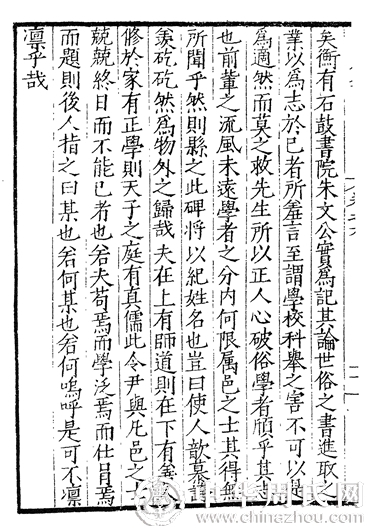 矣衡有石鼓書院朱文公實爲記其論世俗之書進取之
業以爲志於已者所羞言至謂學校科舉之害不可以是
爲適然而莫之救先生所以正人心破俗學者頎乎其
也前輩之流風未遠學者之分内何限属邑之士其得無
所聞乎然則縣之此碑將以紀姓名也豈曰使人歆慕
矻矻然爲物外之歸哉夫在上有師道則在下有善
修於家有正學則天子之庭有真儒此令尹與凡邑之士
兢兢終日而不能已者也若夫苟焉而學泛焉而仕冐焉
而題則後人指之曰某也若何某也若何嗚呼是可不凛
凛乎哉
中华周氏网
www.chinazhou.com